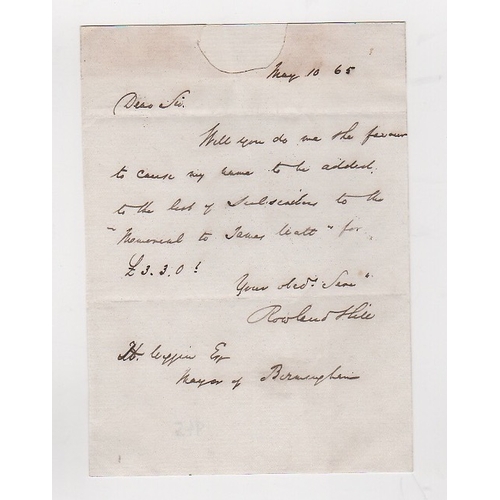 May 10 65
Dear Sir.
Will you do me the favour
to cause my name to be added
to the list of Subscribers to the
"Memorial to James Watt" for
£3.3.0!
Your obedt Servt
Rowland Hill
H. Wiggin Esq
Mayor of Birmingham